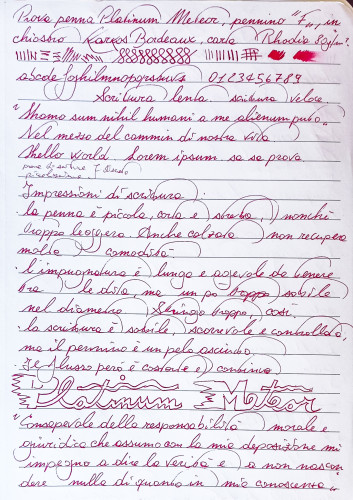 Prova penna Platinum Meteor, pennino "F", in
chiostro Karkos Bordeaux, carta Rhodia 80g/m².
abcdefghilmnopqrstuvz 0123456789
Scrittura lenta. scrittura veloce.
"Homo sum nihil humani a me alienum puto"
Nel mezzo del cammin di nostra vita
Hello world. Lorem ipsum sa sa prova
prova di scrittura
Impressioni di scrittura:
- la penna è piccola, corta e stretta, nonché
troppo leggera. Anche calzata non recupera
molta comodità
- l'impugnatura è lunga e agevole da tenere
tra le dita, ma un po' troppo sottile
nel diametro. Stringo troppo, così.
- la scrittura è sottile scorrevole e controllata,
ma il pennino è un pelo asciutto
- Il flusso però è costante e continuo
Platinum Meteor
"Consapevole della responsabilità morale e
giuridica che assumo con la mia deposizione mi
impegno a dire la verità e a non nascon
dere nulla di quanto in mia conoscenza"